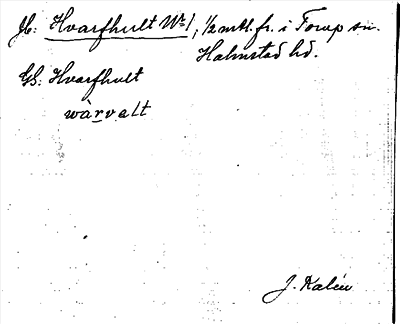 Jb: Hvarfhult Nº 1, 1/2 mtl. fr. i Torup sn.
Halmstad hd.
GS: Hvarfhult
wàrvalt
J. Kalén